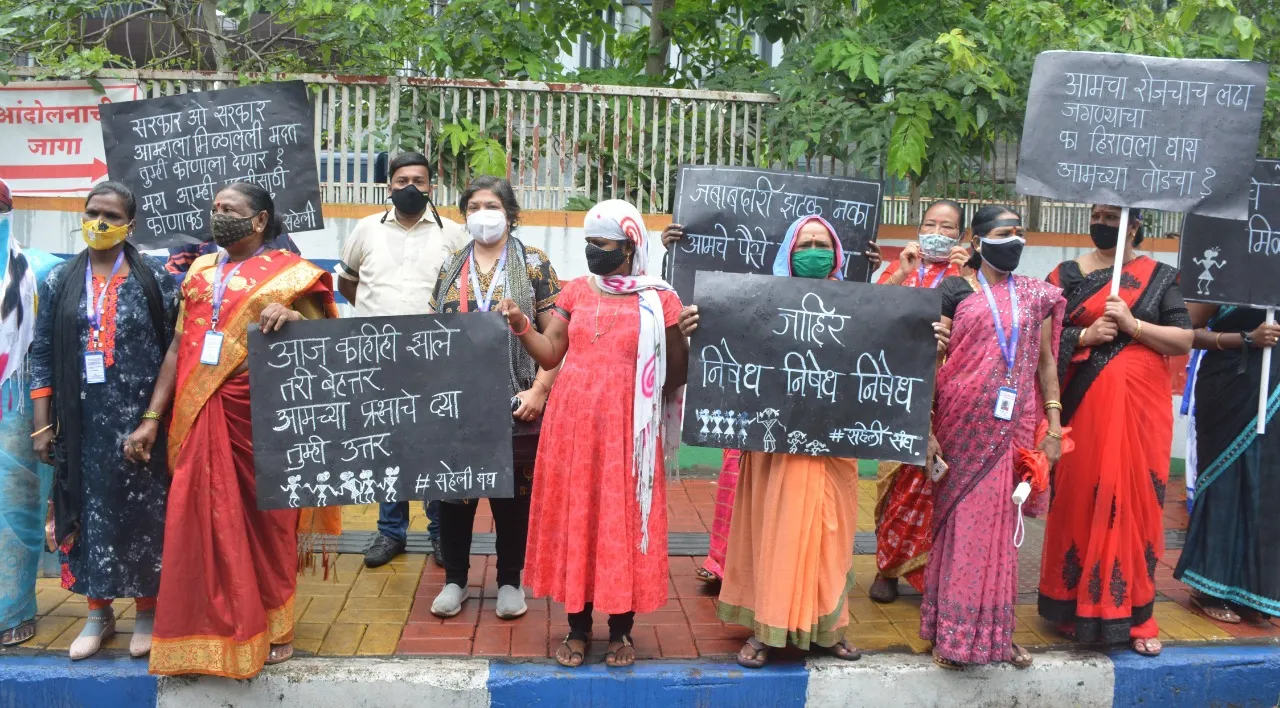 आंदोलनाची
जागा
सरकार ओ सरकार
आम्हाला मिळालेली मदत
तुम्ही कोणाला देणार ?
मग आम्ही
कोणाकडे
सहेली
आज काहीही झाले
तरी बेहत्तर
आमच्या प्रश्नाचे द्या
तुम्ही उत्तर
# सहेली संघ
जबाबदारी झटकू नका
आमचे पैसे
जाहिर
निषेध निषेध निषेध
#सहेली संघ.
आमचा रोजचाच लढा
जगण्याचा
का हिरावला घास
आमच्या तोंडचा ?